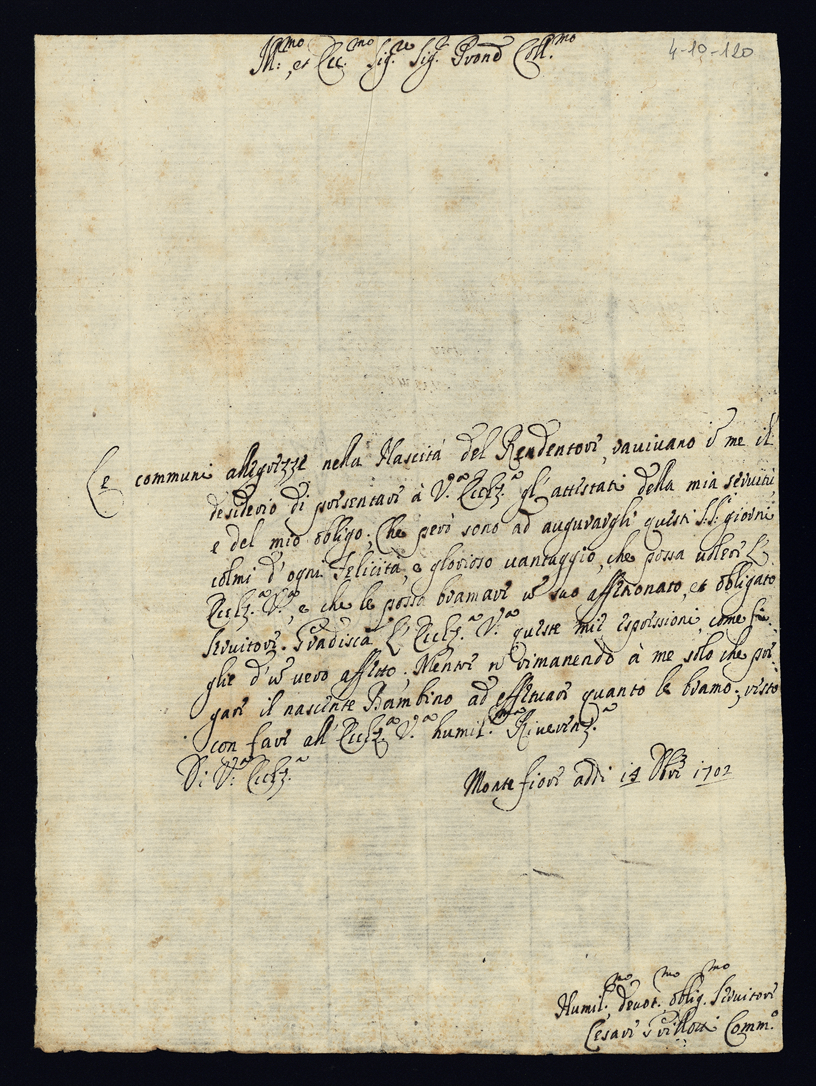 Ill:mo, et Ecc.mo Sig.re Sig.r Pron Coll.mo
4-10-120
Le communi allegrezze nella Nascità del Redentore, ravivano in me il
desiderio di presentare à V.ra Eccelz.a gl'attestati della mia servitù
e del mio obligo; Che però sono ad augurargli questi S.S. giorni
colmi d'ogni Felicità, e glorioso vantaggio, che possa L'
Eccelz.a V.ra, e che le possa bramare un suo affettionato, et obligato
Servitore. Gradisca L'Eccelz.a V.ra queste mie espressioni, come
glie d'un vero affetto; Mentre non rimanendo à me solo che pre-
gare il nascente Bambino ad effettuare quanto le bramo; resto
con fare all'Eccelz.a V.ra humil.ma Riverenz.a
Di V.ra Eccelz.a
Monte fiore addi 14 Xbre 1702
Humil.mo devot.mo oblig.mo Servitore
Cesare Comm.o